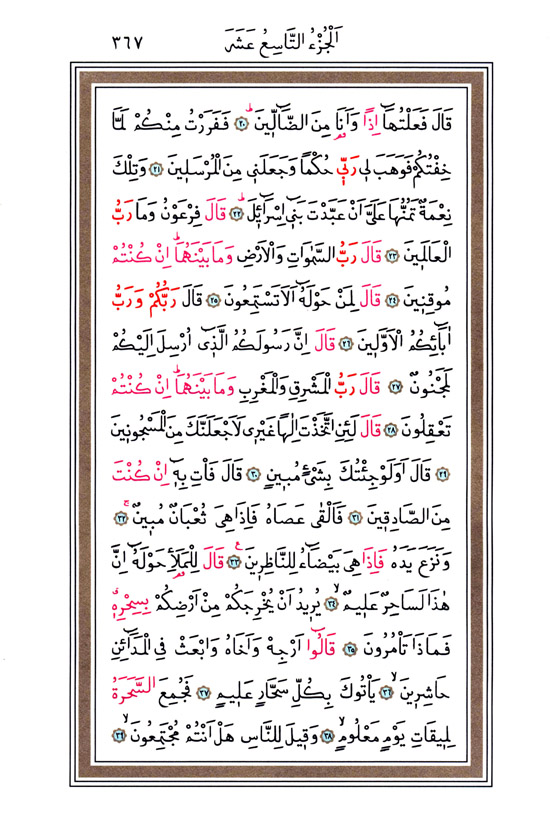 اَلْجُزْءُ التَّاسِعُ عَشَرَ ٣٦٧
قَالَ فَعَلْتُهَٓا اِذًا وَاَنَا۬ مِنَ الضَّٓالّ۪ينَۜ ﴿٢٠﴾ فَفَرَرْتُ مِنْكُمْ لَمَّا
خِفْتُكُمْ فَوَهَبَ ل۪ي رَبّ۪ي حُكْمًا وَجَعَلَن۪ي مِنَ الْمُرْسَل۪ينَ ﴿٢١﴾ وَتِلْكَ
نِعْمَةٌ تَمُنُّهَا عَلَيَّ اَنْ عَبَّدْتَ بَن۪ٓي اِسْرَٓائ۪لَۜ ﴿٢٢﴾ قَالَ فِرْعَوْنُ وَمَا رَبُّ
الْعَالَم۪ينَ ﴿٢٣﴾ قَالَ رَبُّ السَّمٰوَاتِ وَالْاَرْضِ وَمَا بَيْنَهُمَاۜ اِنْ كُنْتُمْ
مُوقِن۪ينَ ﴿٢٤﴾ قَالَ لِمَنْ حَوْلَهُٓ اَلَا تَسْتَمِعُونَ ﴿٢٥﴾ قَالَ رَبُّكُمْ وَرَبُّ
اٰبَٓائِكُمُ الْاَوَّل۪ينَ ﴿٢٦﴾ قَالَ اِنَّ رَسُولَكُمُ الَّذ۪ٓي اُرْسِلَ اِلَيْكُمْ
لَمَجْنُونٌ ﴿٢٧﴾ قَالَ رَبُّ الْمَشْرِقِ وَالْمَغْرِبِ وَمَا بَيْنَهُمَاۜ اِنْ كُنْتُمْ
تَعْقِلُونَ ﴿٢٨﴾ قَالَ لَئِنِ اتَّخَذْتَ اِلٰهًا غَيْر۪ي لَاَجْعَلَنَّكَ مِنَ الْمَسْجُون۪ينَ
﴿٢٩﴾ قَالَ اَوَلَوْ جِئْتُكَ بِشَيْءٍ مُب۪ينٍ ﴿٣٠﴾ قَالَ فَأْتِ بِه۪ٓ اِنْ كُنْتَ
مِنَ الصَّادِق۪ينَ ﴿٣١﴾ فَاَلْقٰى عَصَاهُ فَاِذَا هِيَ ثُعْبَانٌ مُب۪ينٌۚ ﴿٣٢﴾
وَنَزَعَ يَدَهُ فَاِذَا هِيَ بَيْضَٓاءُ لِلنَّاظِر۪ينَ۟ ﴿٣٣﴾ قَالَ لِلْمَلَأِ حَوْلَهُٓ اِنَّ
هٰذَا لَسَاحِرٌ عَل۪يمٌۙ ﴿٣٤﴾ يُر۪يدُ اَنْ يُخْرِجَكُمْ مِنْ اَرْضِكُمْ بِسِحْرِه۪ۗ
فَمَاذَا تَأْمُرُونَ ﴿٣٥﴾ قَالُٓوا اَرْجِهْ وَاَخَاهُ وَابْعَثْ فِي الْمَدَٓائِنِ
حَاشِر۪ينَۙ ﴿٣٦﴾ يَأْتُوكَ بِكُلِّ سَحَّارٍ عَل۪يمٍ ﴿٣٧﴾ فَجُمِعَ السَّحَرَةُ
لِم۪يقَاتِ يَوْمٍ مَعْلُومٍۙ ﴿٣٨﴾ وَق۪يلَ لِلنَّاسِ هَلْ اَنْتُمْ مُجْتَمِعُونَۙ ﴿٣٩﴾